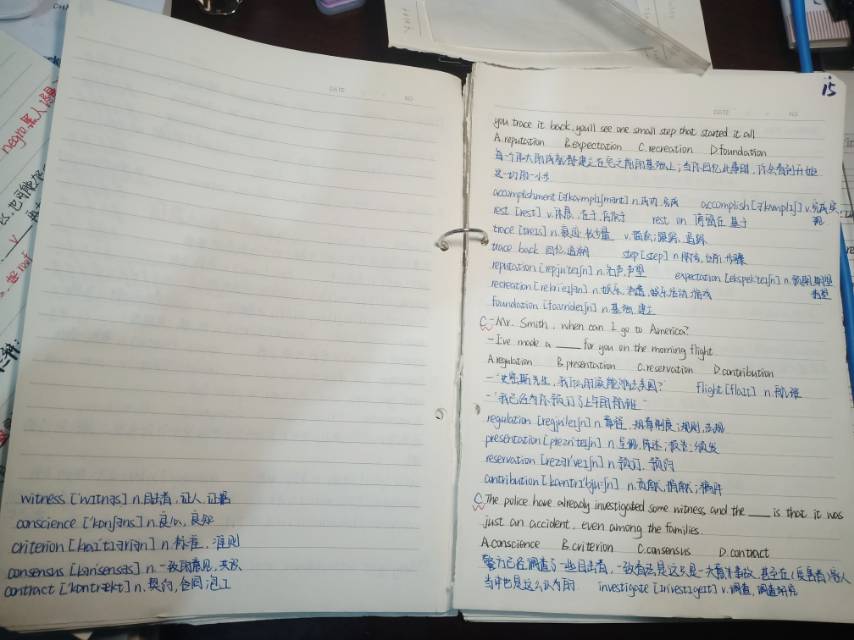 negro 黑人
witness ['wɪtnəs] n.目击者，证人，证据
conscience ['kɒnʃəns] n.良心，良知
criterion [kraɪ'tɪəriən] n.标准，准则
consensus [kən'sensəs] n.一致的意见，共识
contract ['kɒntrækt] n.契约，合同，包工
DATE NO
15
DATE NO
you trace it back, you'll see one small step that started it all
A.reputation B.expectation C.recreation D.foundation
每一个伟大的成就都建立在它之前的基础上；当你回忆此事时，你会看到开始
这一切的一小步
accomplishment [ə'kʌmplɪʃmənt] n.成就，完成 accomplish [ə'kʌmplɪʃ] v.完成，实现
rest [rest] v.休息，在于 rest on 基于
trace [treɪs] n.痕迹，少量 v.追踪，追溯
trace back 回忆，追溯 step [step] n.脚步，步骤
reputation [repju'teɪʃn] n.名声，声望 expectation [ekspek'teɪʃn] n.预期，期望
recreation [rekri'eɪʃn] n.娱乐，消遣，娱乐活动，游戏
foundation [faʊn'deɪʃn] n.基础，建立
C -Mr. Smith, when can I go to America?
-I've made a ____ for you on the morning flight.
A.regulation B.presentation C.reservation D.contribution
-"史密斯先生，我什么时候能够去美国？" flight [flaɪt] n.航班
-"我已经为你预订了上午的航班"
regulation [regju'leɪʃn] n.章程，规章制度；规则，法规
presentation [prezn'teɪʃn] n.呈现，陈述；报告；颁发
reservation [rezə'veɪʃn] n.预订，预约
contribution [kɒntrɪ'bjuːʃn] n.贡献，捐献；稿件
C The police have already investigated some witness, and the ____ is that it was
just an accident, even among the families.
A.conscience B.criterion C.consensus D.contract
警方已经调查了一些目击者，一致看法是这只是一次意外事故，甚至在(受害者)家人
当中也是这么认为的 investigate [ɪn'vestɪgeɪt] v.调查，调查研究